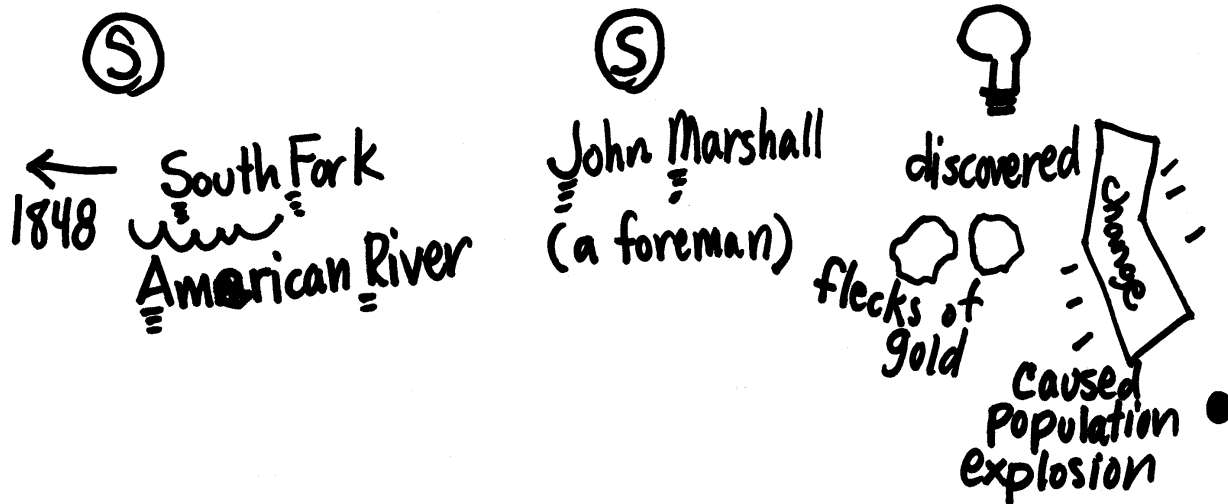 S
S
1848
South Fork
American River
John Marshall
(a foreman)
discovered
flecks of
gold
change
caused
population
explosion